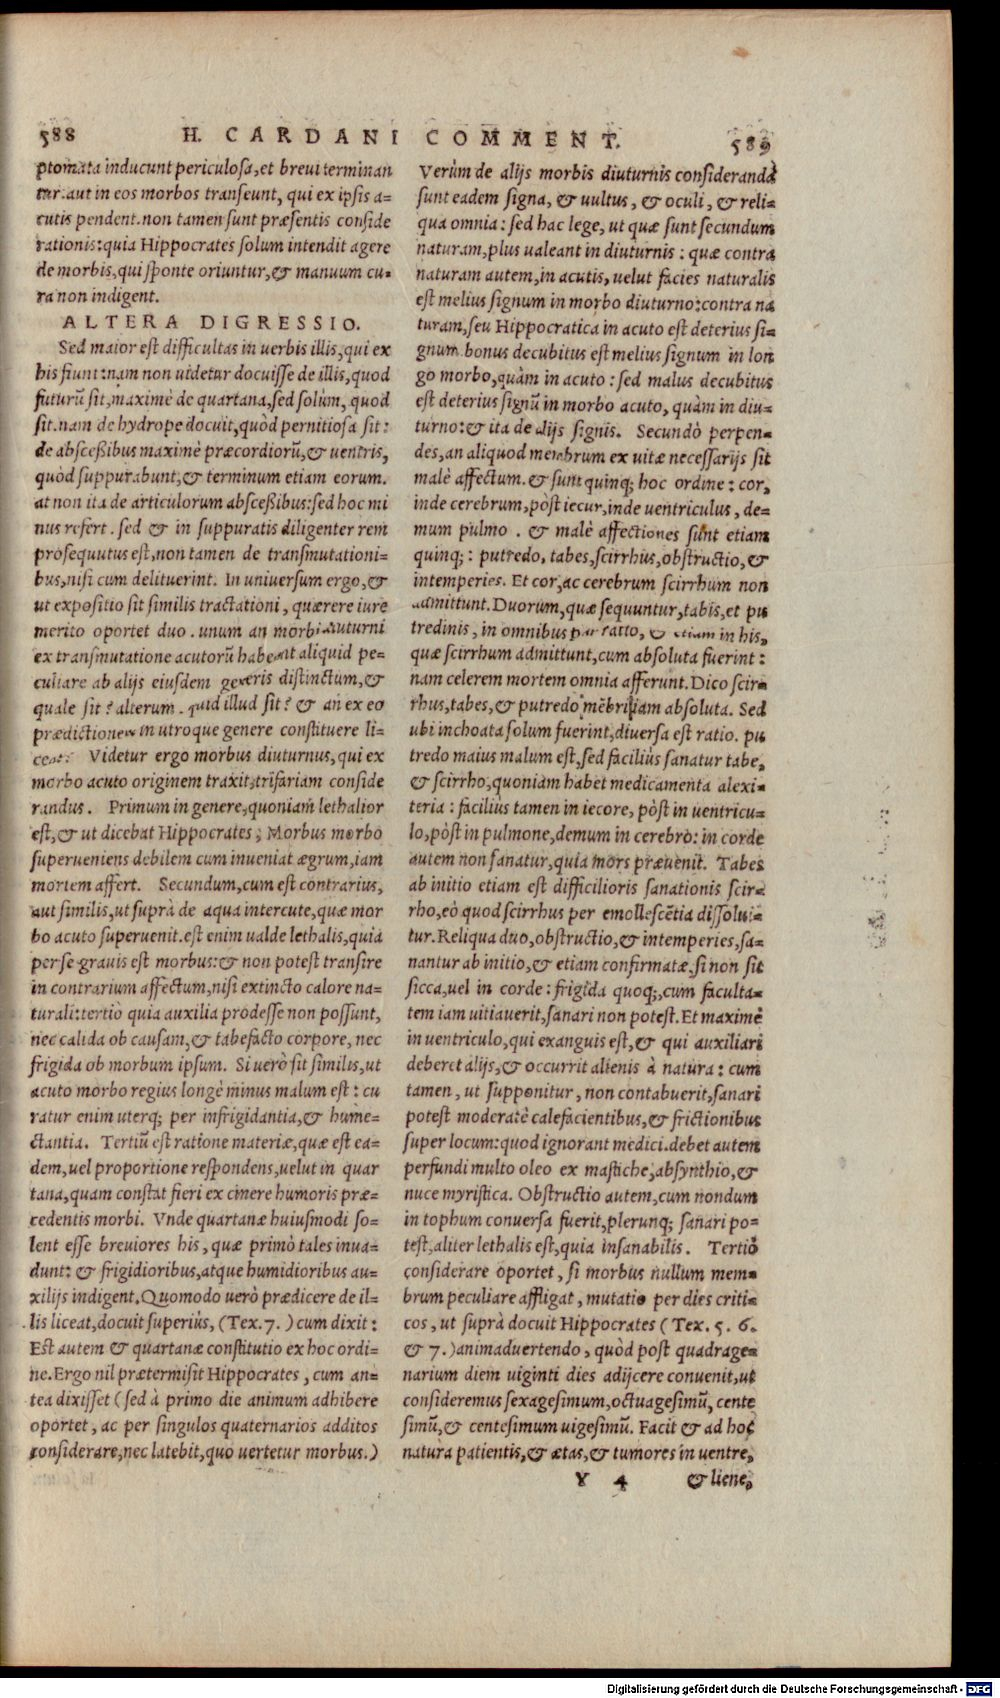 588 H. CARDANI COMMENT. 589
ptomata inducunt periculosa, et breui terminan
tur. aut in eos morbos transeunt, qui ex ipsis a-
cutis pendent. non tamen sunt præsentis conside
rationis: quia Hippocrates solum intendit agere
de morbis, qui sponte oriuntur, & manuum cu-
ra non indigent.
ALTERA DIGRESSIO.
Sed maior est difficultas in uerbis illis, qui ex
his fiunt: nam non uidetur docuisse de illis, quod
futurū sit, maximè de quartana, sed solùm, quod
sit. nam de hydrope docuit, quòd pernitiosa sit:
de abscessibus maximè præcordiorū, & uentris,
quòd suppurabunt, & terminum etiam eorum.
at non ita de articulorum abscessibus: sed hoc mi
nus refert. sed & in suppuratis diligenter rem
prosequutus est, non tamen de transmutationi-
bus, nisi cum delituerint. In uniuersum ergo, &
ut expositio sit similis tractationi, quærere iure
merito oportet duo. unum an morbi diuturni
ex transmutatione acutorū habeant aliquid pe-
culiare ab alijs eiusdem generis distinctum, &
quale sit? alterum. quid illud sit? & an ex eo
prædictionem in utroque genere constituere li-
ceat? Videtur ergo morbus diuturnus, qui ex
morbo acuto originem traxit, trifariam conside
randus. Primum in genere, quoniam lethalior
est, & ut dicebat Hippocrates; Morbus morbo
superueniens debilem cum inueniat ægrum, iam
mortem affert. Secundum, cum est contrarius,
aut similis, ut suprà de aqua intercute, quæ mor
bo acuto superuenit. est enim ualde lethalis, quia
per se grauis est morbus: & non potest transire
in contrarium affectum, nisi extincto calore na-
turali: tertiò quia auxilia prodesse non possunt,
nec calida ob causam, & tabefacto corpore, nec
frigida ob morbum ipsum. Si uerò sit similis, ut
acuto morbo regius longè minus malum est: cu
ratur enim uterq; per infrigidantia, & hume-
ctantia. Tertiū est ratione materiæ, quæ est ea-
dem, uel proportione respondens, uelut in quar
tana, quam constat fieri ex cinere humoris præ-
cedentis morbi. Vnde quartanæ huiusmodi so-
lent esse breuiores his, quæ primò tales inua-
dunt: & frigidioribus, atque humidioribus au-
xilijs indigent. Quomodo uerò prædicere de il-
lis liceat, docuit superiùs, (Tex. 7.) cum dixit:
Est autem & quartanæ constitutio ex hoc ordi-
ne. Ergo nil prætermisit Hippocrates, cum an-
tea dixisset (sed à primo die animum adhibere
oportet, ac per singulos quaternarios additos
considerare, nec latebit, quo uertetur morbus.)
Verùm de alijs morbis diuturnis consideranda
sunt eadem signa, & uultus, & oculi, & reli-
qua omnia: sed hac lege, ut quæ sunt secundum
naturam, plus ualeant in diuturnis: quæ contra
naturam autem, in acutis, uelut facies naturalis
est melius signum in morbo diuturno: contra na
turam, seu Hippocratica in acuto est deterius si-
gnum. bonus decubitus est melius signum in lon
go morbo, quàm in acuto: sed malus decubitus
est deterius signū in morbo acuto, quàm in diu-
turno: & ita de alijs signis. Secundò perpen-
des, an aliquod membrum ex uitæ necessarijs sit
malè affectum. & sunt quinq; hoc ordine: cor,
inde cerebrum, pòst iecur, inde uentriculus, de-
mum pulmo. & malè affectiones sunt etiam
quinq;: putredo, tabes, scirrhus, obstructio, &
intemperies. Et cor, ac cerebrum scirrhum non
admittunt. Duorum, quæ sequuntur, tabis, et pu
tredinis, in omnibus par ratio, & etiam in his,
quæ scirrhum admittunt, cum absoluta fuerint:
nam celerem mortem omnia afferunt. Dico scir-
rhus, tabes, & putredo mēbri iam absoluta. Sed
ubi inchoata solum fuerint, diuersa est ratio. pu
tredo maius malum est, sed faciliùs sanatur tabe,
& scirrho, quoniam habet medicamenta alexi-
teria: faciliùs tamen in iecore, pòst in uentricu-
lo, pòst in pulmone, demum in cerebro: in corde
autem non sanatur, quia mors præuenit. Tabes
ab initio etiam est difficilioris sanationis scir-
rho, eò quod scirrhus per emollescētia dissolui-
tur. Reliqua duo, obstructio, & intemperies, sa-
nantur ab initio, & etiam confirmatæ, si non sit
sicca, uel in corde: frigida quoq;, cum faculta-
tem iam uitiauerit, sanari non potest. Et maximè
in uentriculo, qui exanguis est, & qui auxiliari
deberet alijs, & occurrit alienis à natura: cum
tamen, ut supponitur, non contabuerit, sanari
potest moderatè calefacientibus, & frictionibus
super locum: quod ignorant medici. debet autem
perfundi multo oleo ex mastiche, absynthio, &
nuce myristica. Obstructio autem, cum nondum
in tophum conuersa fuerit, plerunq; sanari po-
test, aliter lethalis est, quia insanabilis. Tertiò
considerare oportet, si morbus nullum mem-
brum peculiare affligat, mutatio per dies criti-
cos, ut suprà docuit Hippocrates (Tex. 5. 6.
& 7.) animaduertendo, quòd post quadrage-
narium diem uiginti dies adijcere conuenit, ut
consideremus sexagesimum, octuagesimū, cente
simū, & centesimum uigesimū. Facit & ad hoc
natura patientis, & ætas, & tumores in uentre,
Y 4 & liene,
Digitalisierung gefördert durch die Deutsche Forschungsgemeinschaft - DFG